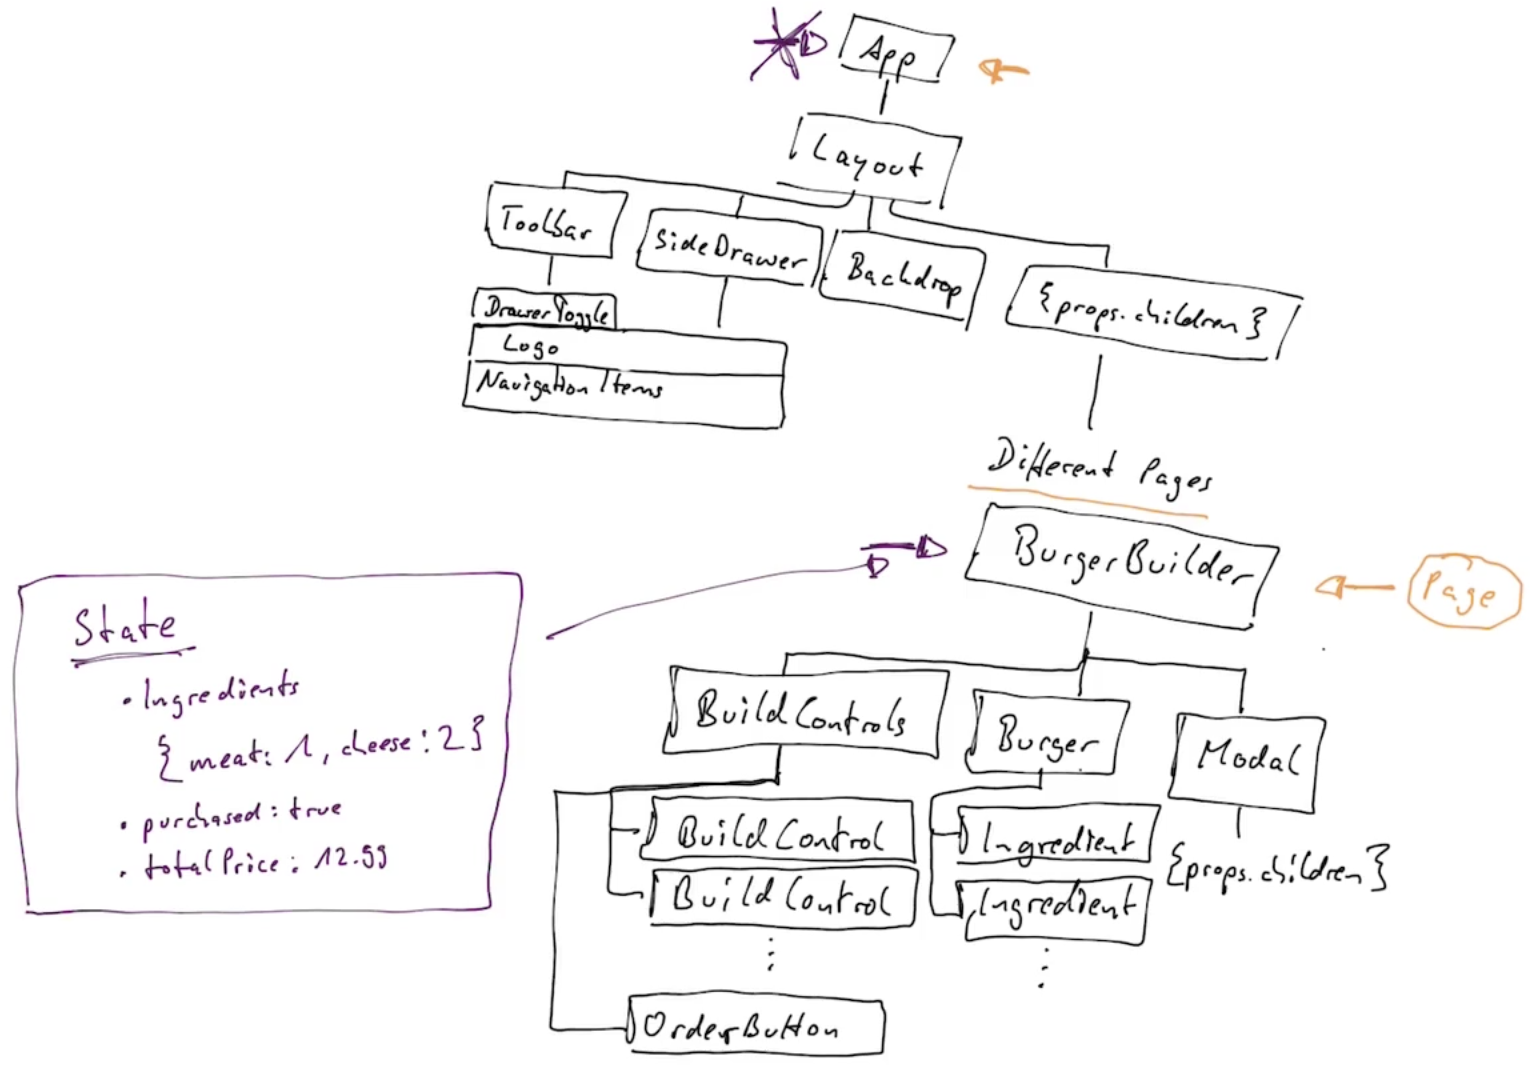 App
Layout
Toolbar
SideDrawer
Backdrop
{props.children}
DrawerToggle
Logo
Navigation Items
Different Pages
BurgerBuilder
Page
State
• Ingredients
{meat: 1, cheese: 2}
• purchased: true
• totalPrice: 12.99
BuildControls
Burger
Modal
BuildControl
BuildControl
Ingredient
Ingredient
{props.children}
OrderButton